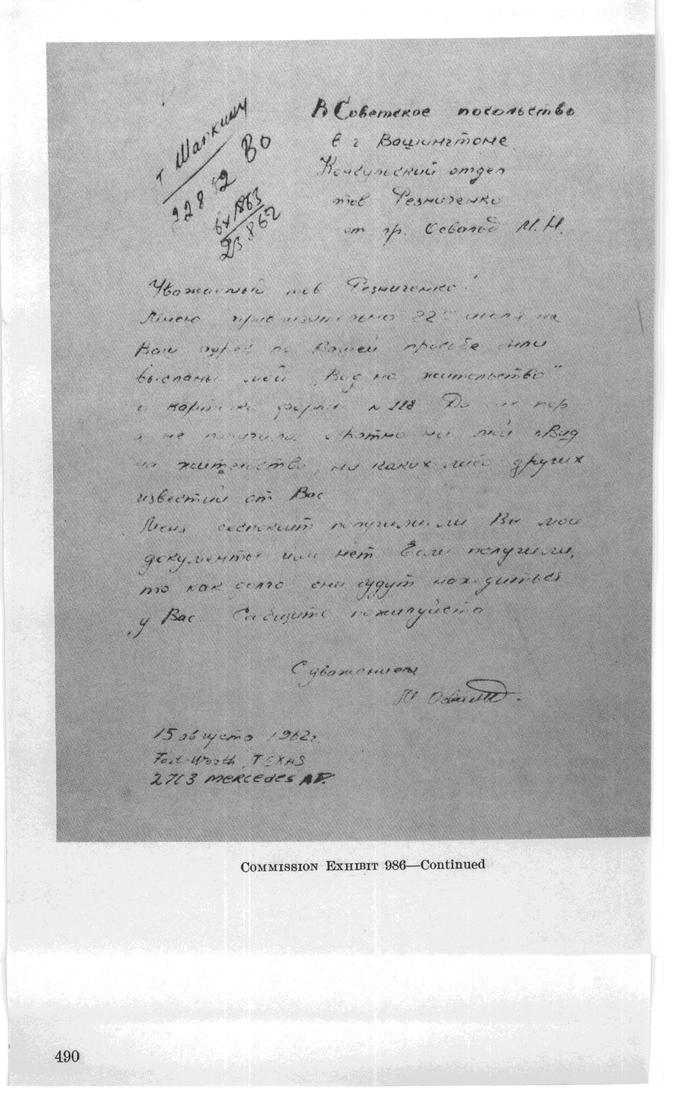 т Шапкину
22 8 62 Во
бх 1863
23.8 62
В Советское посольство
в г Вашингтоне
Консульский отдел
тов Резниченко
от гр. Освальд М.Н.
Уважаемый тов Резниченко!
приблизительно 22го июля на
Ваш адрес по Вашей просьбе были
высланы мой „Вид на жительство"
и карточка форма №118 До сих пор
я не получила обратно ни мой „Вид
на жительство, ни каких либо других
известий от Вас
Меня беспокоит получили ли Вы мои
документы или нет Если получили,
то как долго они будут находиться
у Вас Сообщите пожалуйста
С уважением
М Освальд.
15 августа 1962г.
Fort-Worth, TEXAS
2703 MERCEDES
COMMISSION EXHIBIT 986—Continued
490